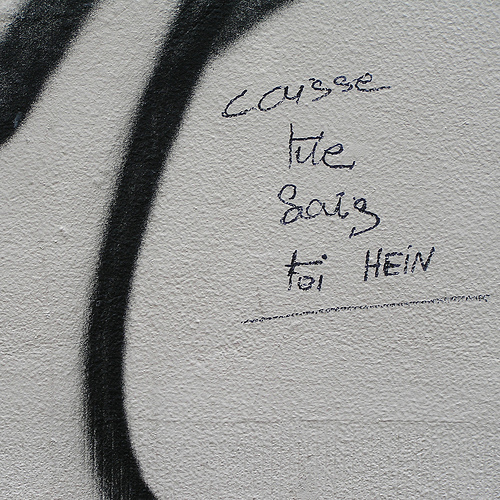 cousse
tue
Sais
toi HEiN